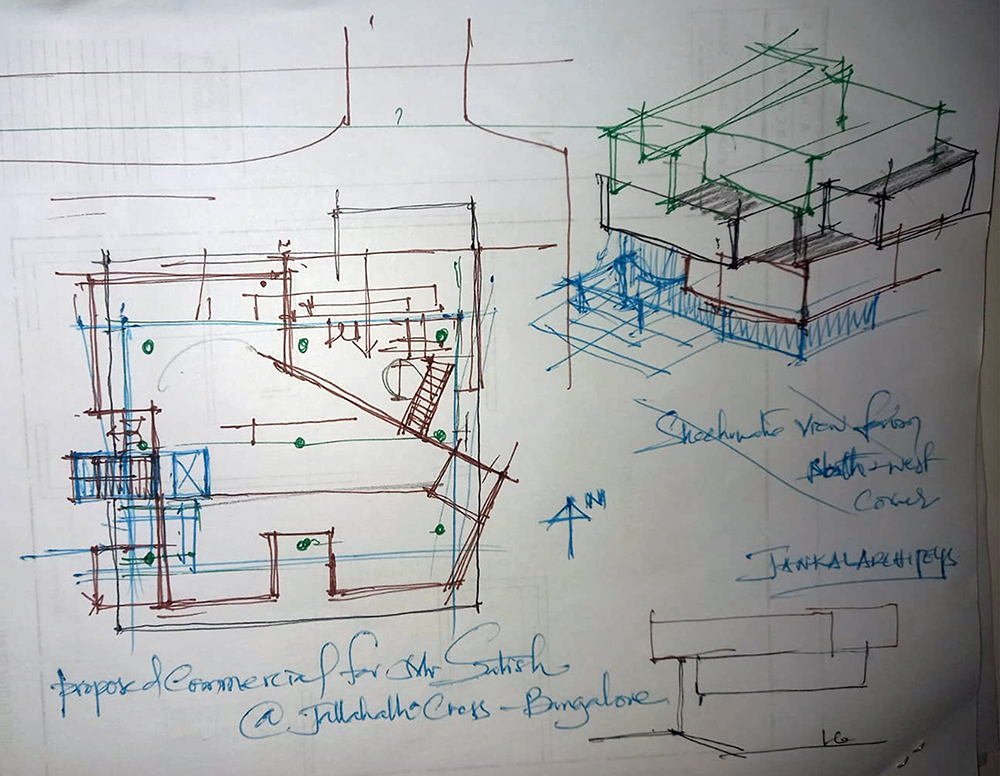 Schematic View facing
North-West
Corner
N
JANKALARCHITEYS
proposed Commercial for Mr Satish
@ Jallahalli Cross - Bangalore